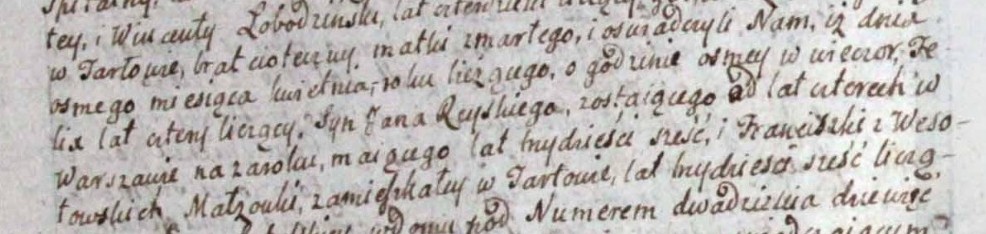 tey, i Wincenty Łobodzinski, lat
w Tarłowie, brat cioteczny matki zmarłego, i oswiadczyli Nam, iż dnia
osmego miesiąca kwietnia, roku bieżącego, o godzinie osmey w wieczor, Fe-
lix lat cztery liczący, Syn Jana Ryskiego, zostaiącego od lat czterech w
Warszawie na zarobku, maiącego lat trzydzieści sześć, i Franciszki z Weso-
łowskich Małżonki, zamieszkałey w Tarłowie, lat trzydzieści sześć licząc-
w domu pod Numerem dwadzieścia dziewięć